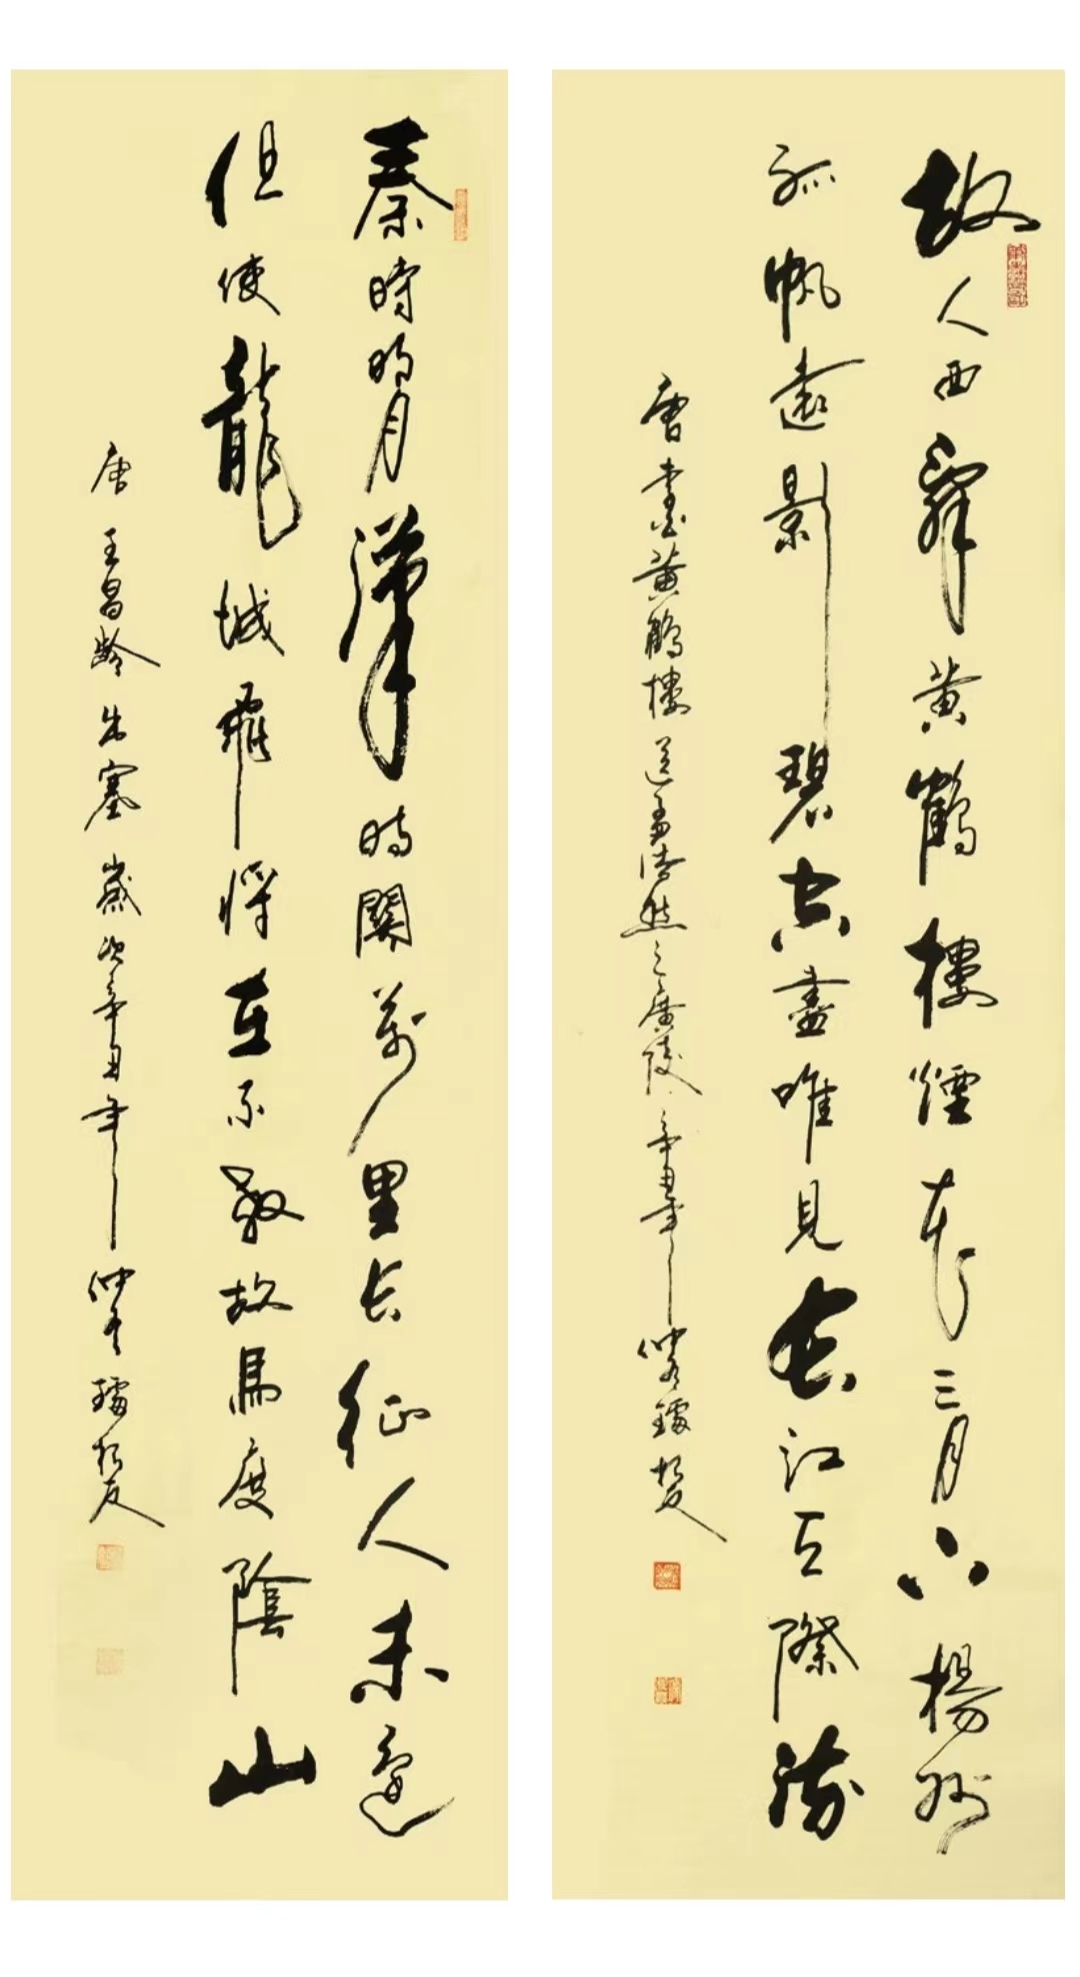 故人西辭黃鶴樓煙花三月下楊州
孤帆遠影碧空盡唯見長江天際流
唐李白黃鶴樓送孟浩然之廣陵辛丑年
秦時明月漢時關萬里長征人未還
但使龍城飛將在不教胡馬度陰山
唐王昌齡出塞歲次辛丑年